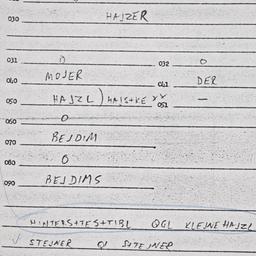 030 HAJZER
031 0 032 0
040 MOJER 041 DER
050 HAJZL) HAJSTKE XX 051 —
060 0
070 BEJDIM
080 0
090 BEJDIMS
QGL KLEJNE HAJZL
STEJNER QJ